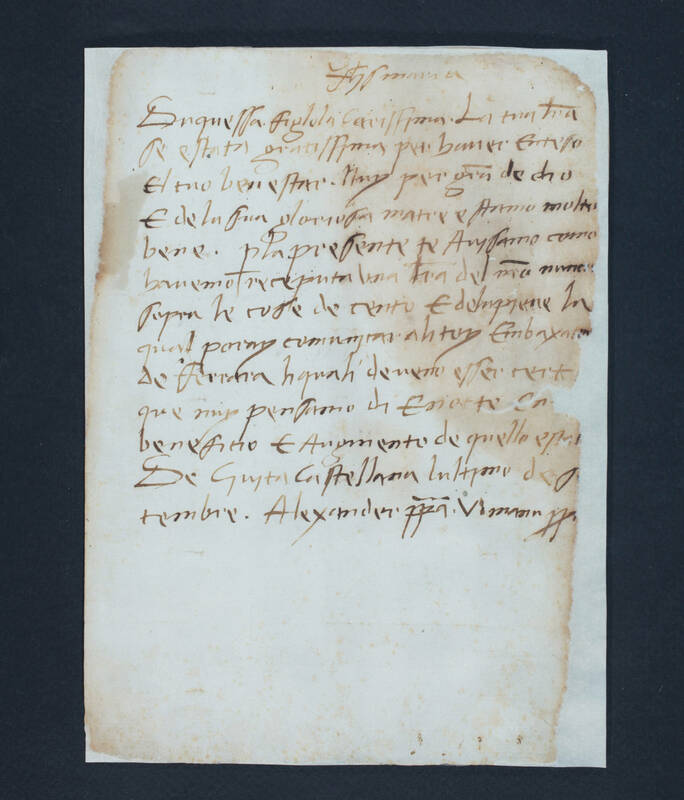 Jhs maria
Duquessa figlola Carissima. La tua l̅r̅a
se estata gratissima per haver Enteso
El tuo benestar. Nuy per gr̅a de dio
E dela sua gloriosa matre e stamo molto
bene. p la presente te Avisamo como
havemo receputa una l̅r̅a del nuncio
sopra le cosse de cento E dela pieve la
qual poray comunicar ali toy Embaxator
de Ferrara li quali deveno esser cert
que nuy pensamo di E nocte En
beneficio E Augmento de quello esta
De Civita Castellana lultimo de s
tembre. Alexander pp̅a. VI manu pp